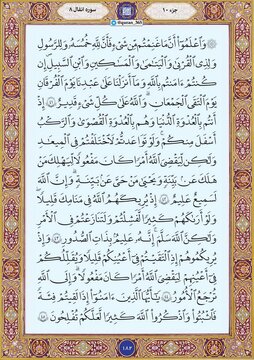 جزء ۱۰
@quran_365
سوره انفال ۸
۞ وَٱعْلَمُوٓا۟ أَنَّمَا غَنِمْتُم مِّن شَىْءٍ فَأَنَّ لِلَّهِ خُمُسَهُۥ وَلِلرَّسُولِ
وَلِذِى ٱلْقُرْبَىٰ وَٱلْيَتَٰمَىٰ وَٱلْمَسَٰكِينِ وَٱبْنِ ٱلسَّبِيلِ إِن
كُنتُمْ ءَامَنتُم بِٱللَّهِ وَمَآ أَنزَلْنَا عَلَىٰ عَبْدِنَا يَوْمَ ٱلْفُرْقَانِ
يَوْمَ ٱلْتَقَى ٱلْجَمْعَانِ وَٱللَّهُ عَلَىٰ كُلِّ شَىْءٍ قَدِيرٌ ۝ إِذْ
أَنتُم بِٱلْعُدْوَةِ ٱلدُّنْيَا وَهُم بِٱلْعُدْوَةِ ٱلْقُصْوَىٰ وَٱلرَّكْبُ
أَسْفَلَ مِنكُمْ وَلَوْ تَوَاعَدتُّمْ لَٱخْتَلَفْتُمْ فِى ٱلْمِيعَٰدِ
وَلَٰكِن لِّيَقْضِىَ ٱللَّهُ أَمْرًا كَانَ مَفْعُولًا لِّيَهْلِكَ مَنْ
هَلَكَ عَنۢ بَيِّنَةٍ وَيَحْيَىٰ مَنْ حَىَّ عَنۢ بَيِّنَةٍ وَإِنَّ ٱللَّهَ
لَسَمِيعٌ عَلِيمٌ ۝ إِذْ يُرِيكَهُمُ ٱللَّهُ فِى مَنَامِكَ قَلِيلًا
وَلَوْ أَرَىٰكَهُمْ كَثِيرًا لَّفَشِلْتُمْ وَلَتَنَٰزَعْتُمْ فِى ٱلْأَمْرِ
وَلَٰكِنَّ ٱللَّهَ سَلَّمَ إِنَّهُۥ عَلِيمٌۢ بِذَاتِ ٱلصُّدُورِ ۝ وَإِذْ
يُرِيكُمُوهُمْ إِذِ ٱلْتَقَيْتُمْ فِىٓ أَعْيُنِكُمْ قَلِيلًا وَيُقَلِّلُكُمْ
فِىٓ أَعْيُنِهِمْ لِيَقْضِىَ ٱللَّهُ أَمْرًا كَانَ مَفْعُولًا وَإِلَى ٱللَّهِ
تُرْجَعُ ٱلْأُمُورُ ۝ يَٰٓأَيُّهَا ٱلَّذِينَ ءَامَنُوٓا۟ إِذَا لَقِيتُمْ فِئَةً
فَٱثْبُتُوا۟ وَٱذْكُرُوا۟ ٱللَّهَ كَثِيرًا لَّعَلَّكُمْ تُفْلِحُونَ ۝
۱۸۲